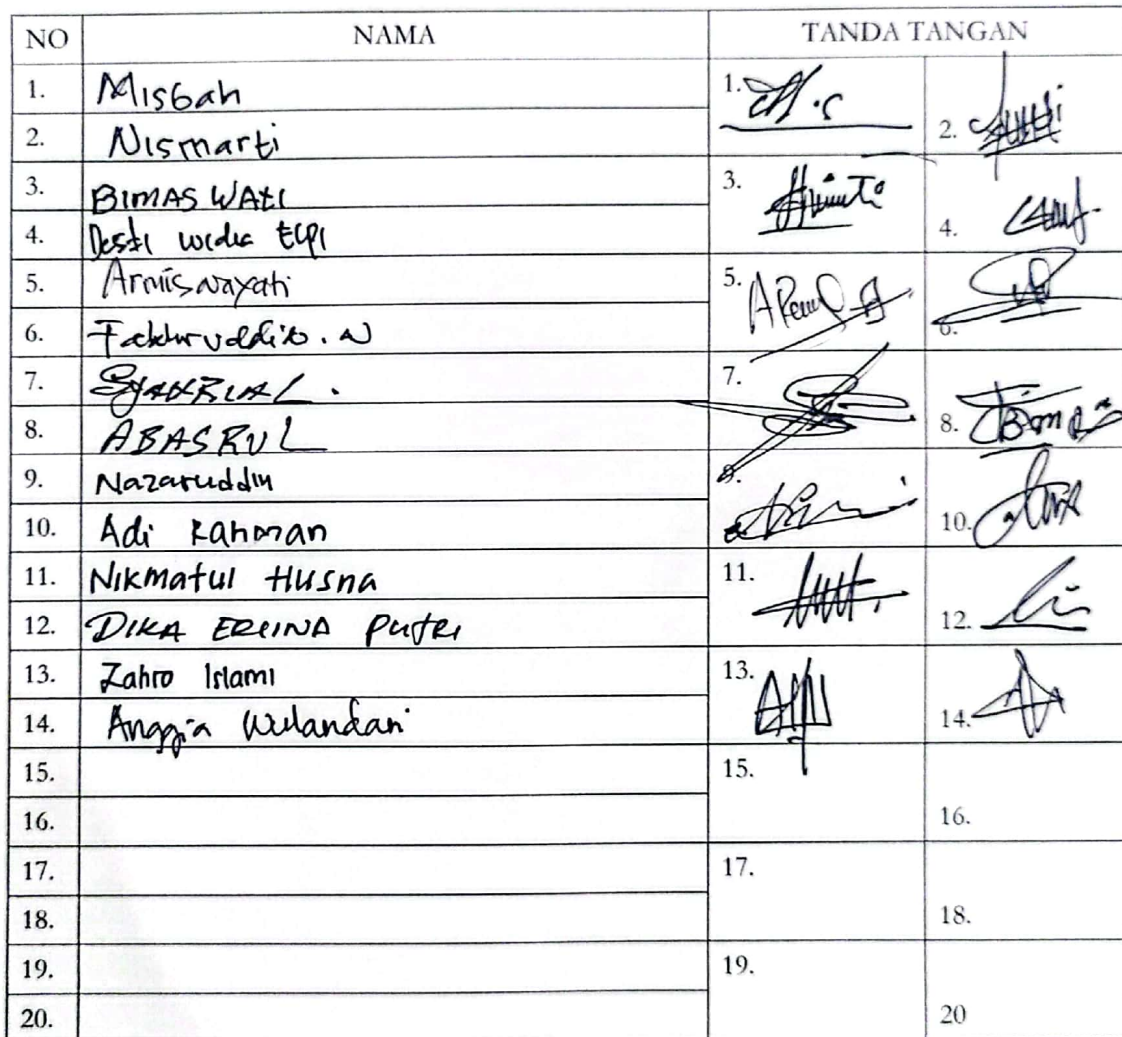 NO NAMA TANDA TANGAN
1. Misbah 1.
2. Nismarti 2.
3. BIMAS WATI 3.
4. Desti widia 4.
5. Armiswayati 5.
6. Fakhruddin. N 6.
7. SYAHRIAL. 7.
8. ABASRUL 8.
9. Nazaruddin 9.
10. Adi Rahman 10.
11. Nikmatul Husna 11.
12. DIKA ERLINA Putri 12.
13. Zahro Islami 13.
14. Anggia Wulandari 14.
15. 15.
16. 16.
17. 17.
18. 18.
19. 19.
20. 20